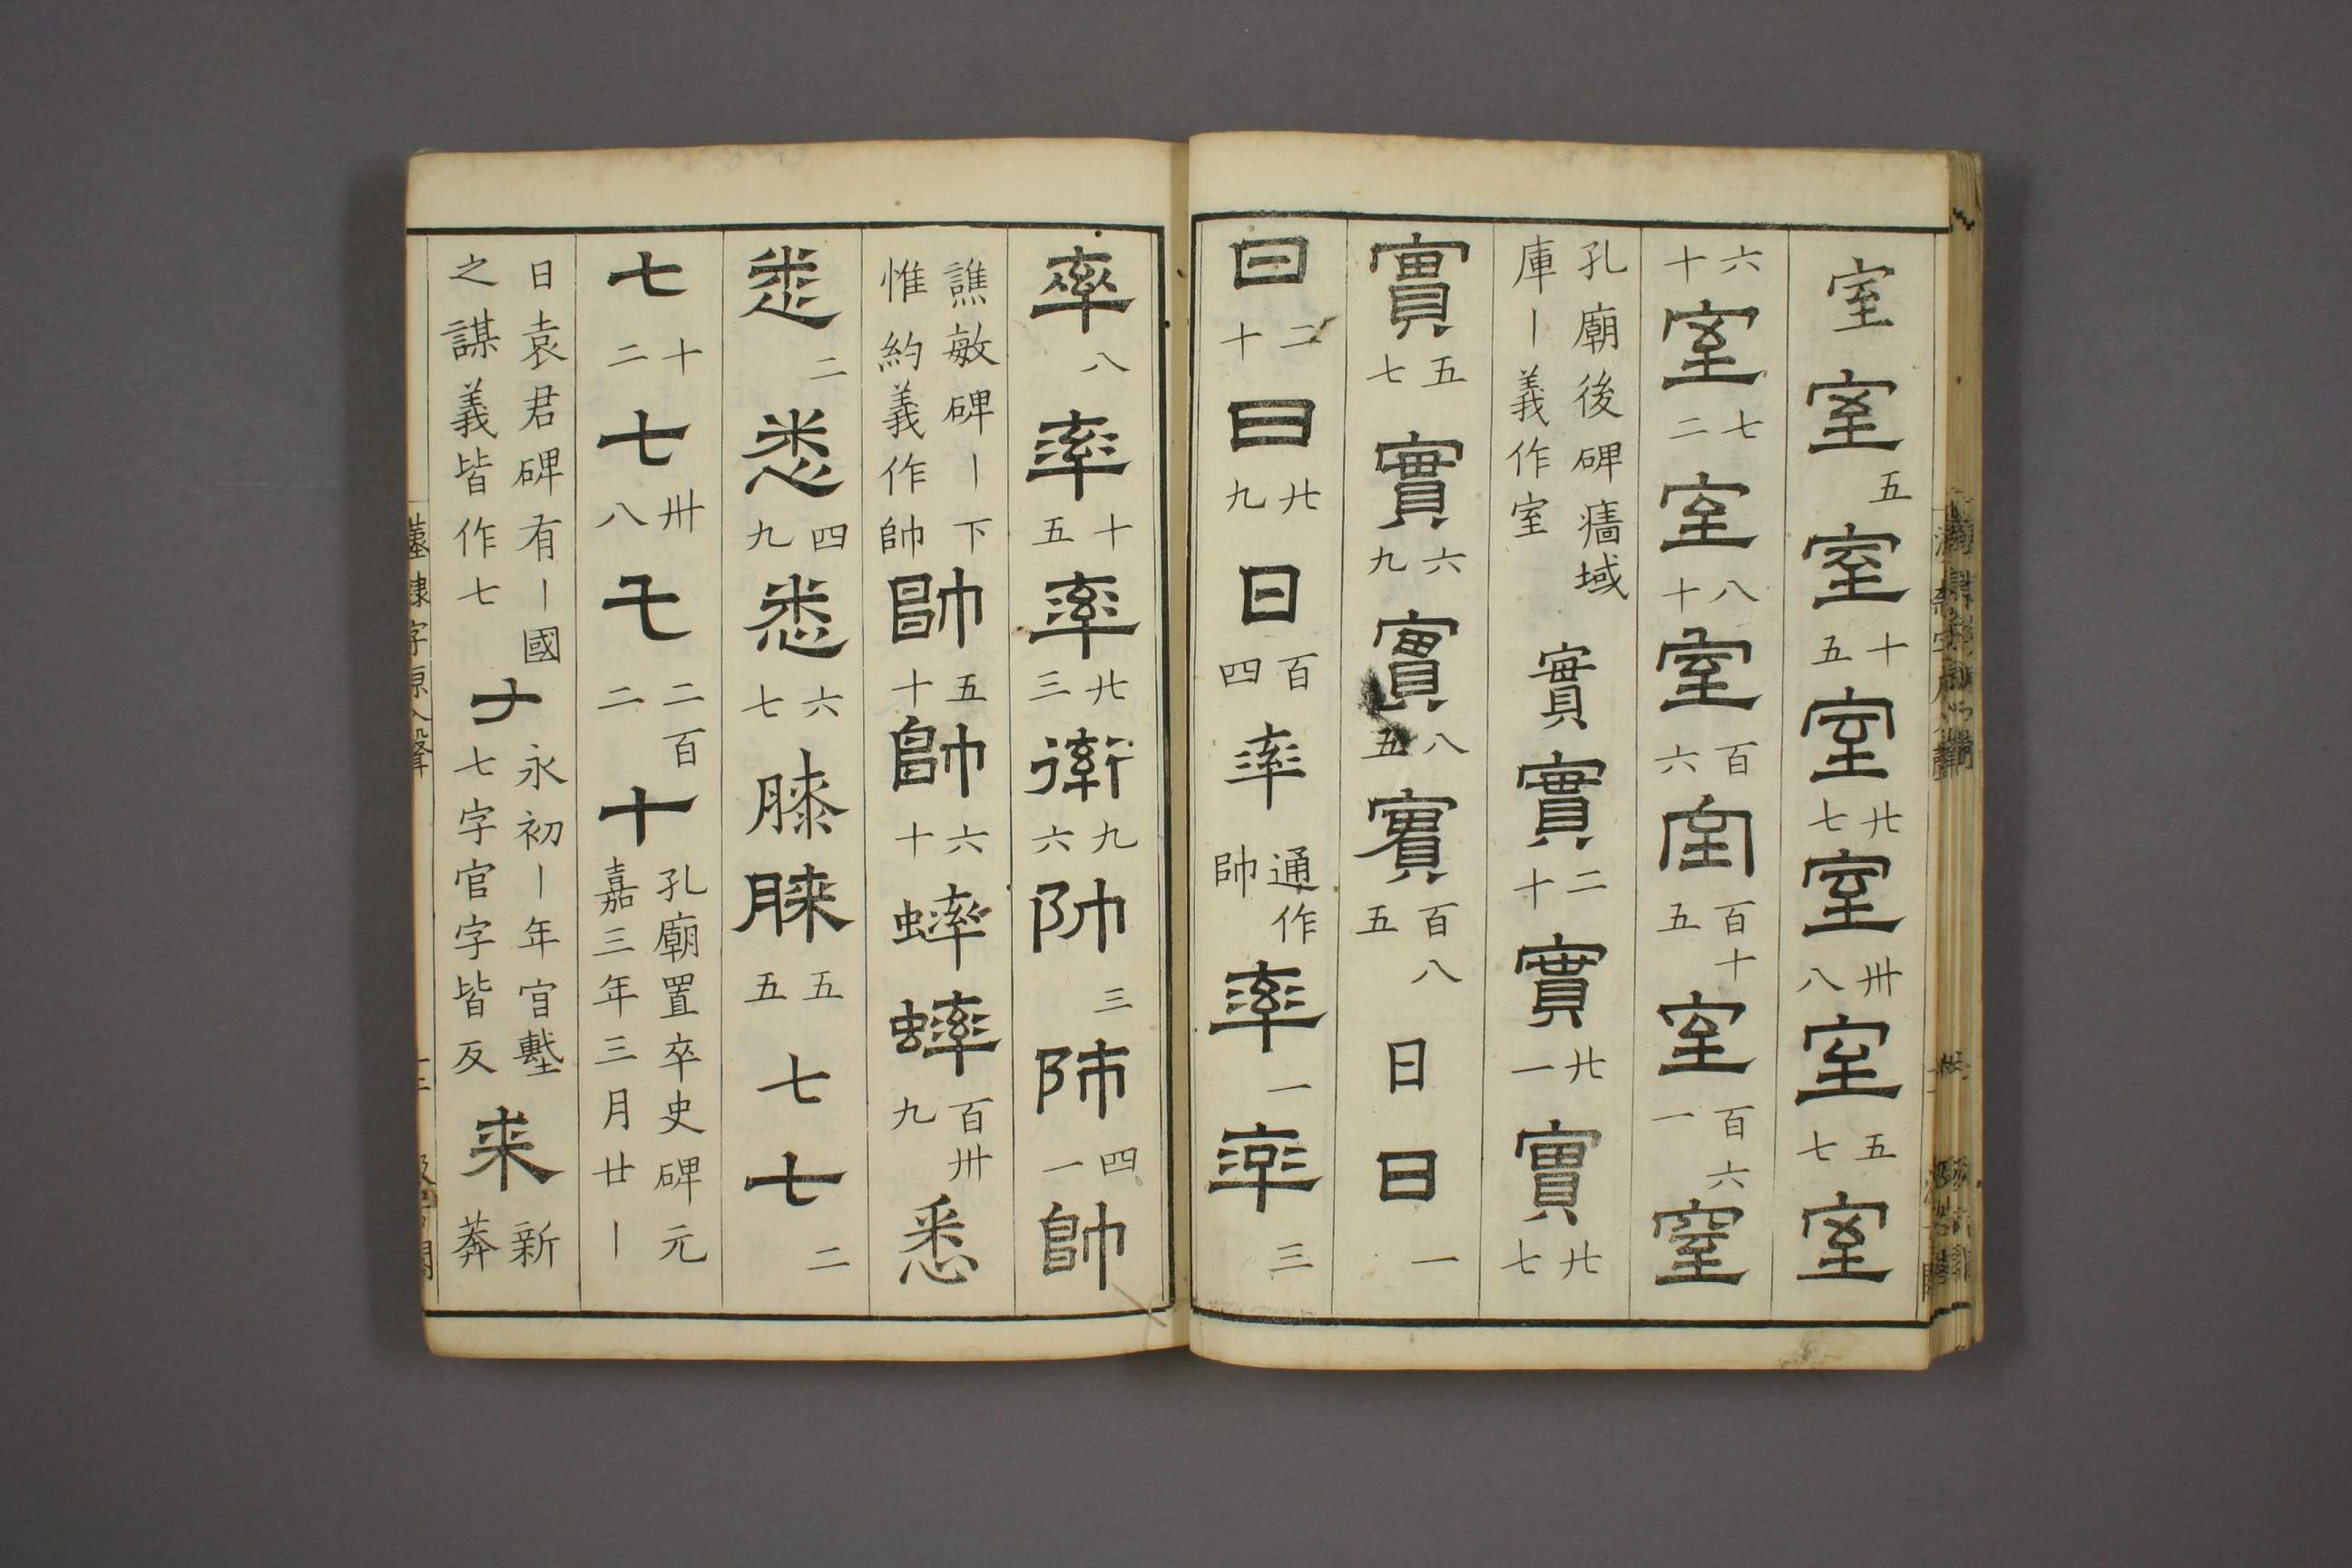 室 室 五 室 十五 室 廿七 室 卅八 室 五七 室
六十 室 七二 室 八十 室 百六 室 百十五 室 百六一 室
孔廟後碑牆域庫丨義作室 實 實 二十 實 廿一 實 廿七
實 五七 實 六九 實 八五 實 百八五 日 日 一
日 二十 日 廿九 日 百四 率 通作帥 率 一 率 三
率 八 率 十五 率 廿三 衛 九六 帥 三 帥 四一 帥
譙敏碑丨下惟約義作帥 帥 五十 帥 六十 蟀 蟀 百卅九 悉
悉 二 悉 四九 悉 六七 膝 膝 五五 七 七 二
七 十二 七 卅八 七 二百二 十 孔廟置卒史碑元嘉三年三月廿丨
日袁君碑有丨國之謀義皆作七 永初丨年官墼七字官字皆反 桼 新莽
隸字原入聲